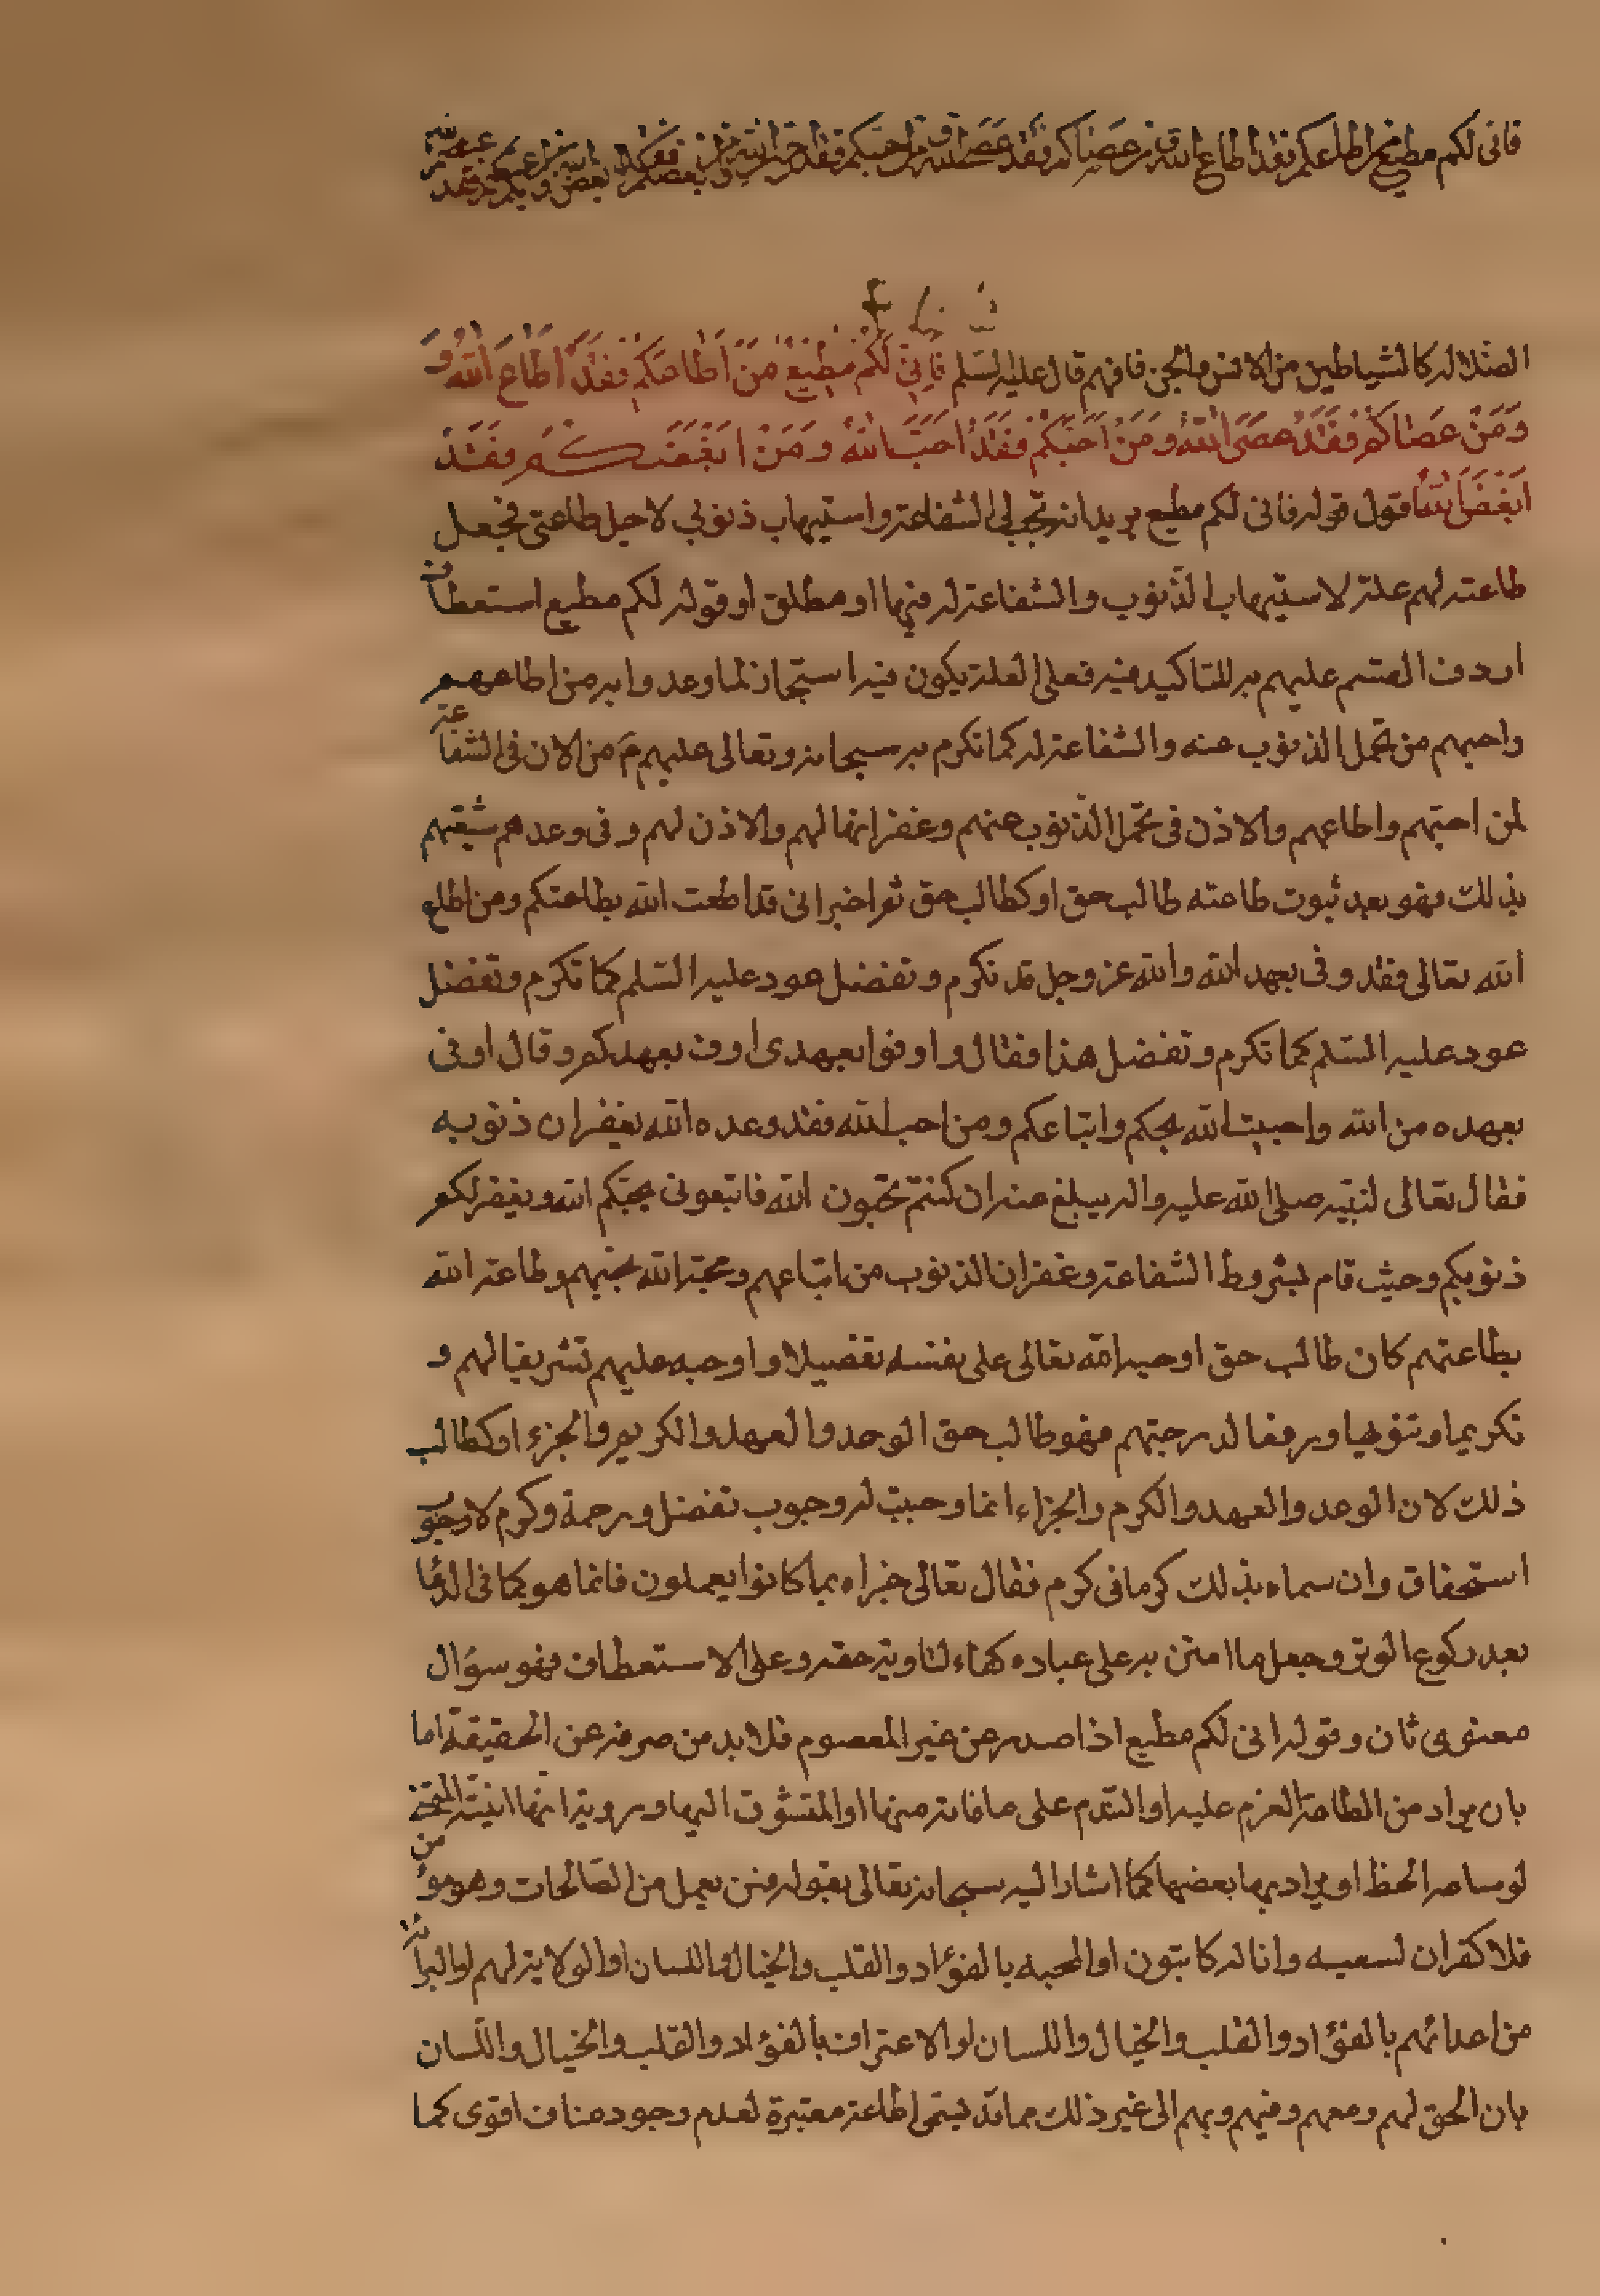 فانى لكم مطيع من اطاعكم فقد اطاع الله و من عصاكم فقد عصى الله و من احبكم فقد احب الله و من ابغضكم فقد ابغض
الضلاله كالشياطين من الانس والجن فافهم قال عليه السلم فَاِنّى لَكُمْ مُطيعٌ مَنْ اَطاعَكُمْ فَقَدْ اَطاعَ اللهَ وَ
وَمَنْ عَصاكُمْ فَقَدْ عَصَى اللهَ وَمَنْ اَحَبَّكُمْ فَقَدْ اَحَبَّ اللهَ وَمَنْ اَبْغَضَكُمْ فَقَدْ
اَبْغَضَ اللهَ اقول قوله فانى لكم مطيع يريد انه تجب لى الشفاعة واستيهاب ذنوبى لاجل طاعتى فجعل
طاعته لهم علة لاستيهاب الذنوب والشفاعة له فيها او مطلق او قوله لكم مطيع استعطاف
اردف القسم عليهم به للتاكيد فيه فعلى العلة يكون فيه استنجاز لما وعدوا به من اطاعهم
واحبهم من تحمل الذنوب عنه والشفاعة له كما تكرم به سبحانه وتعالى عليهم من الاذن فى الشفاعة
لمن احبهم واطاعهم والاذن فى تحمل الذنوب عنهم وغفرانها لهم والاذن لهم و فى وعدهم شيعتهم
بذلك فهو بعد ثبوت طاعته طالب حق او كطالب حق ثم اخبر انى قد اطعت الله بطاعتكم ومن اطاع
الله تعالى فقد وفى بعهد الله والله عز وجل قد تكرم وتفضل عود عليه السلم كما تكرم وتفضل
عود عليه السلم كما تكرم وتفضل هذا فقال واوفوا بعهدى اوف بعهدكم وقال اوفى
بعهده من الله واحببت الله بحبكم واتباعكم ومن احب الله فقد وعده الله بغفران ذنوبه
فقال تعالى لنبيه صلى الله عليه واله يبلغ عنه ان كنتم تحبون الله فاتبعونى يحببكم الله ويغفر لكم
ذنوبكم وحيث قام بشروط الشفاعة وغفران الذنوب من اتباعهم ومحبة الله بحبهم وطاعة الله
بطاعتهم كان طالب حق اوجبه الله تعالى على نفسه تفضلا واوجبه عليهم تشريفا لهم و
تكريما وتنويها ورفعا لدرجتهم فهو طالب حق الوعد والعهد والكريم والجزء او كطالب
ذلك لان الوعد والعهد والكرم والجزاء انما وجبت له وجوب تفضل ورحمة وكرم لا وجوب
استحقاق وان سماه بذلك كرما فى كرم فقال تعالى جزاء بما كانوا يعملون فانما هو كما فى الدعا
بعد ركوع الوتر وجعل ما امتن به على عباده كفاء لتادية حقه وعلى الاستعطاف فهو سؤال
معنوى ثان وقوله انى لكم مطيع اذا صدر من غير المعصوم فلا بد من صرفه عن الحقيقة اما
بان يراد من الطاعة العزم عليه او الندم على ما فاته منها او التشوق اليها ورؤية انها امنيته المتمنى
لو ساعده الحظ او يراد بها بعضها كما اشار اليه سبحانه تعالى بقوله فمن يعمل من الصالحات وهو مؤمن
فلا كفران لسعيه وانا له كاتبون او المحبه بالفؤاد والقلب والخيال واللسان او الولاية لهم او البرائة
من اعدائهم بالفؤاد والقلب والخيال واللسان او الاعتراف بالفؤاد والقلب والخيال واللسان
بان الحق لهم ومعهم وفيهم وبهم الى غير ذلك مما قد يسمى اطاعة معتبرة لعدم وجود مناف اقوى كما